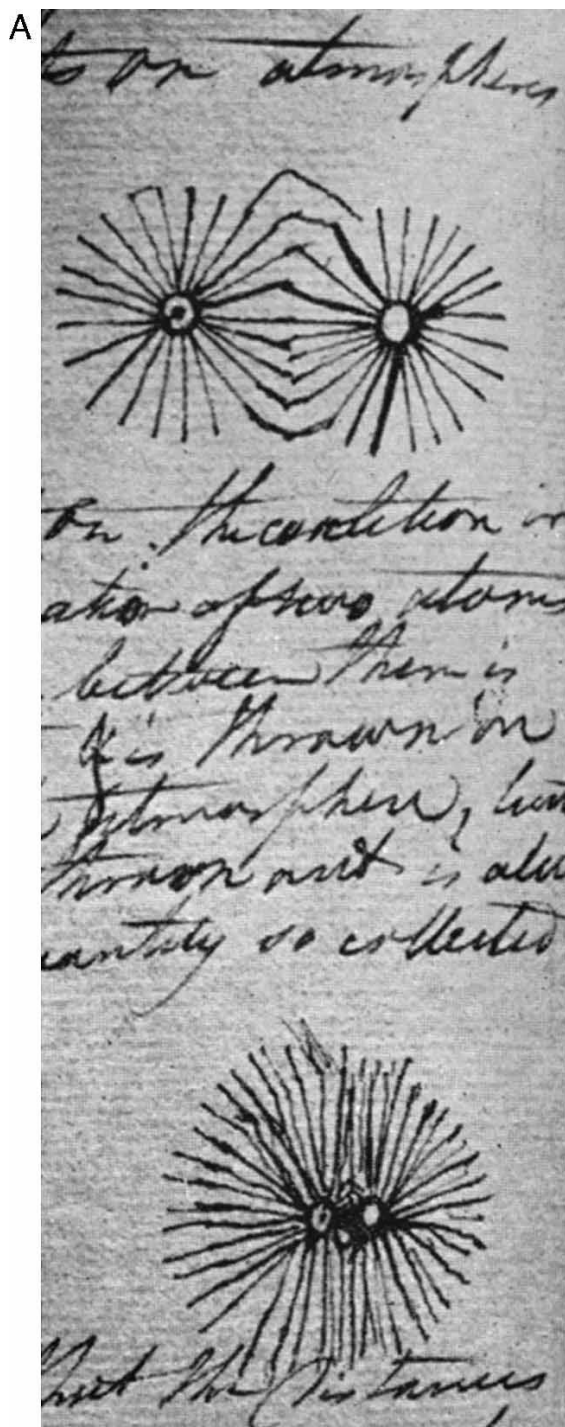 A
ts on atmospheres
on. The condition in
ation of two atoms
between them is
it is thrown in
atmosphere, but
thrown out is al
uantity so collected
that the Distances